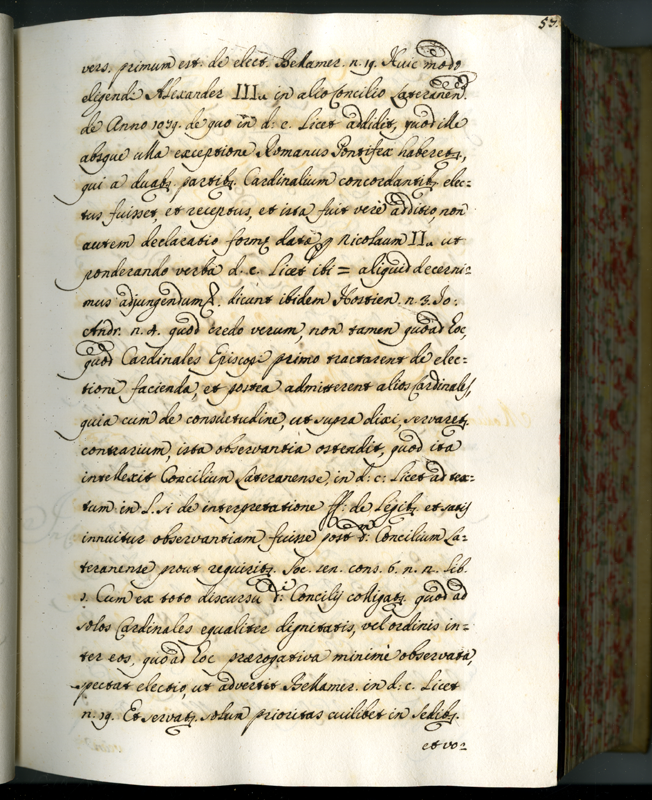 53.
vers. primum est: de elect. Bellamer. n. 19. Huic modo
eligendi Alexander III.us in alio Concilio Lateranen.
de Anno 1079. de quo in d: c. Licet addidit, quod ille
absque ulla exceptione Romanus Pontifex haberetz,
qui a duabz. partibz. Cardinalium concordantibz elec=
tus fuisset, et receptus, et ista fuit vere additio, non
autem declaratio formę data p Nicolaum II.u ut
ponderando verba d. c. Licet ibi = aliquid decerni=
mus adjungendum &. dicunt ibidem Hostien. n. 3. Jo:
Andr. n. 4. quod credo verum, non tamen quoad hoc,
quod Cardinales Episcopi primo tractarent de elec=
tione facienda, et postea admitterent alios Cardinales,
quia cum de consuetudine, ut supra dixi, servaretz.
contrarium, ista observantia ostendit, quod ita
intellexit Concilium Lateranense, in d: c: Licet ad tex=
tum: in L. si de interpretatione ff: de Legibz. et satis
innuitur observantiam fuisse post d.m Concilium La=
teranense prout requiritz. Soc. sen. cons. 6. n. n. lib.
3. Cum ex toto discursu d.i Concilij colligatz. quod ad
solos Cardinales equaliter dignitatis, vel ordinis in=
ter eos, quoad hoc prærogativa minimè observata,
spectat electio, ut advertit Bellamer. in d: c. Licet
n: 19. Et servatz. solum prioritas cuilibet in sedibz.
et vo=